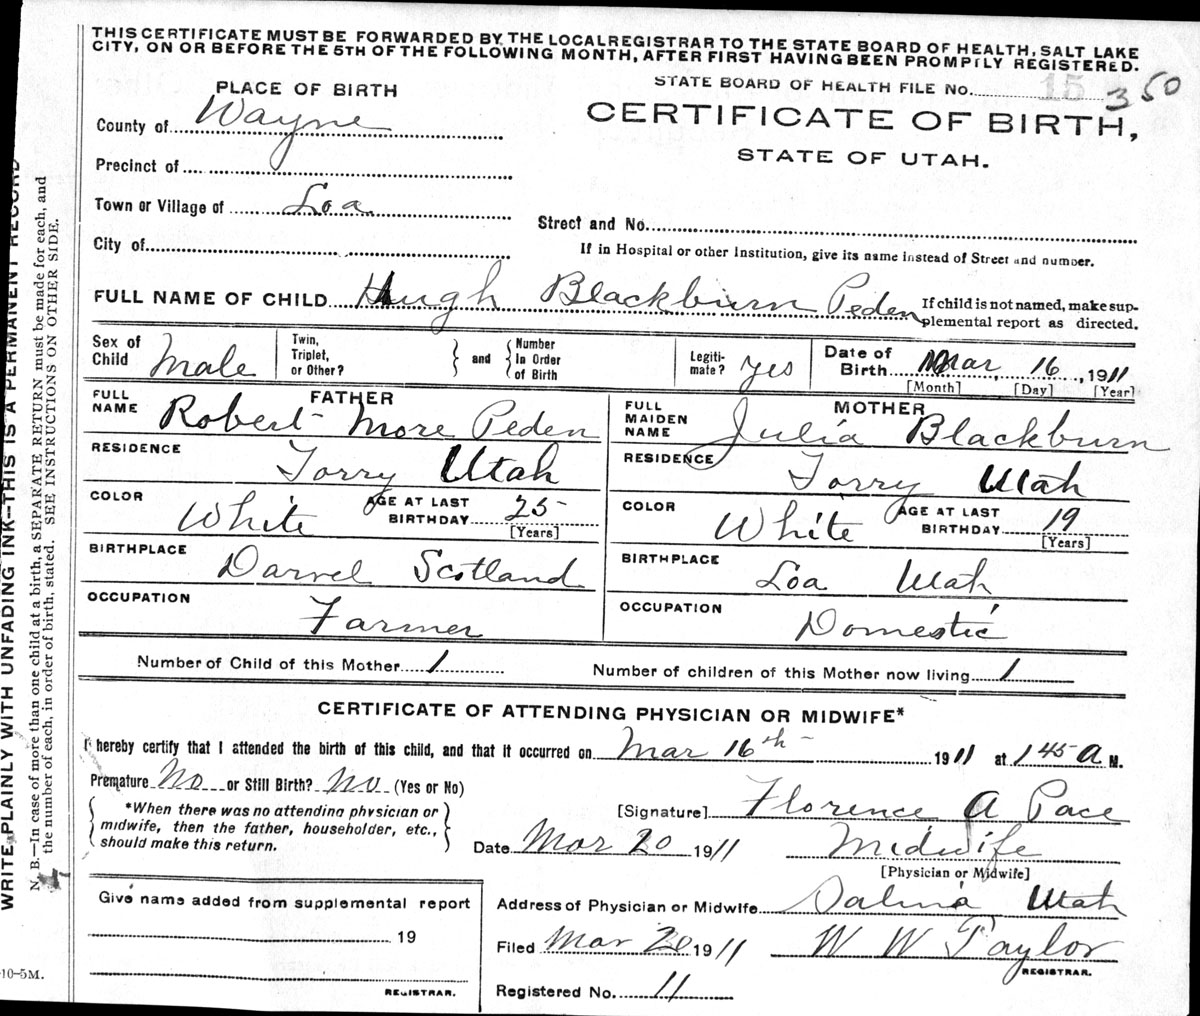 THIS CERTIFICATE MUST BE FORWARDED BY THE LOCAL REGISTRAR TO THE STATE BOARD OF HEALTH, SALT LAKE
CITY, ON OR BEFORE THE 5TH OF THE FOLLOWING MONTH, AFTER FIRST HAVING BEEN PROMPTLY REGISTERED.
PLACE OF BIRTH
STATE BOARD OF HEALTH FILE No. 15 350
County of Wayne
CERTIFICATE OF BIRTH,
STATE OF UTAH.
Precinct of
Town or Village of Loa
Street and No.
City of
If in Hospital or other Institution, give its name instead of Street and number.
FULL NAME OF CHILD Hugh Blackburn Peden
If child is not named, make sup-
plemental report as directed.
Sex of Child Male
Twin, Triplet, or Other? } and { Number In Order of Birth
Legiti-mate? yes
Date of Birth Mar 16, 1911
[Month] [Day] [Year]
FATHER
FULL NAME Robert More Peden
MOTHER
FULL MAIDEN NAME Julia Blackburn
RESIDENCE Torry Utah
RESIDENCE Torry Utah
COLOR White AGE AT LAST BIRTHDAY 25
[Years]
COLOR White AGE AT LAST BIRTHDAY 19
[Years]
BIRTHPLACE Darvel Scotland
BIRTHPLACE Loa Utah
OCCUPATION Farmer
OCCUPATION Domestic
Number of Child of this Mother 1
Number of children of this Mother now living 1
CERTIFICATE OF ATTENDING PHYSICIAN OR MIDWIFE*
I hereby certify that I attended the birth of this child, and that it occurred on Mar 16th 1911 at 1 45 A M.
Premature No or Still Birth? No (Yes or No)
*When there was no attending physician or
midwife, then the father, householder, etc.,
should make this return.
[Signature] Florence A Pace
Date Mar 20 1911 Midwife
[Physician or Midwife]
Give name added from supplemental report
19
REGISTRAR.
Address of Physician or Midwife Salina Utah
Filed Mar 20 1911 W W Taylor
REGISTRAR.
Registered No. 11
10-5M.
WRITE PLAINLY WITH UNFADING INK—THIS IS A PERMANENT RECORD
N. B.—In case of more than one child at a birth, a SEPARATE RETURN must be made for each, and
the number of each, in order of birth, stated. SEE INSTRUCTIONS ON OTHER SIDE.